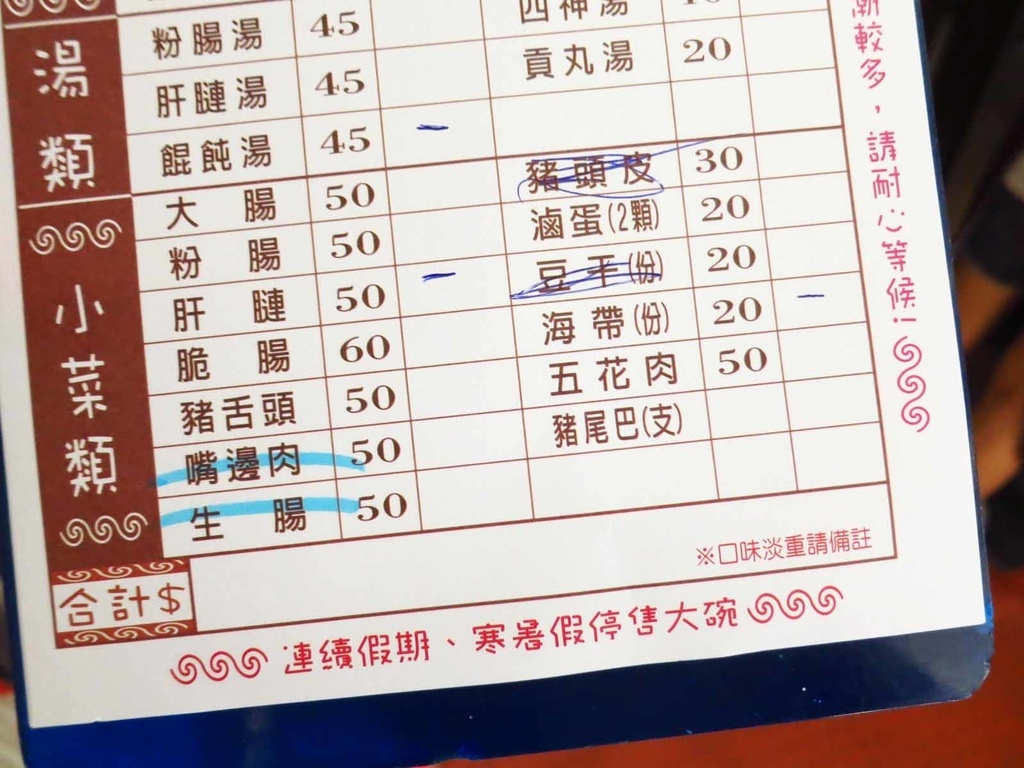 湯類
粉腸湯 45
肝腱湯 45
餛飩湯 45
貢丸湯 20
小菜類
大腸 50
粉腸 50
肝腱 50
脆腸 60
豬舌頭 50
嘴邊肉 50
生腸 50
豬頭皮 30
滷蛋(2顆) 20
豆干(份) 20
海帶(份) 20
五花肉 50
豬尾巴(支)
※口味淡重請備註
合計$
連續假期、寒暑假停售大碗
較多，請耐心等候!